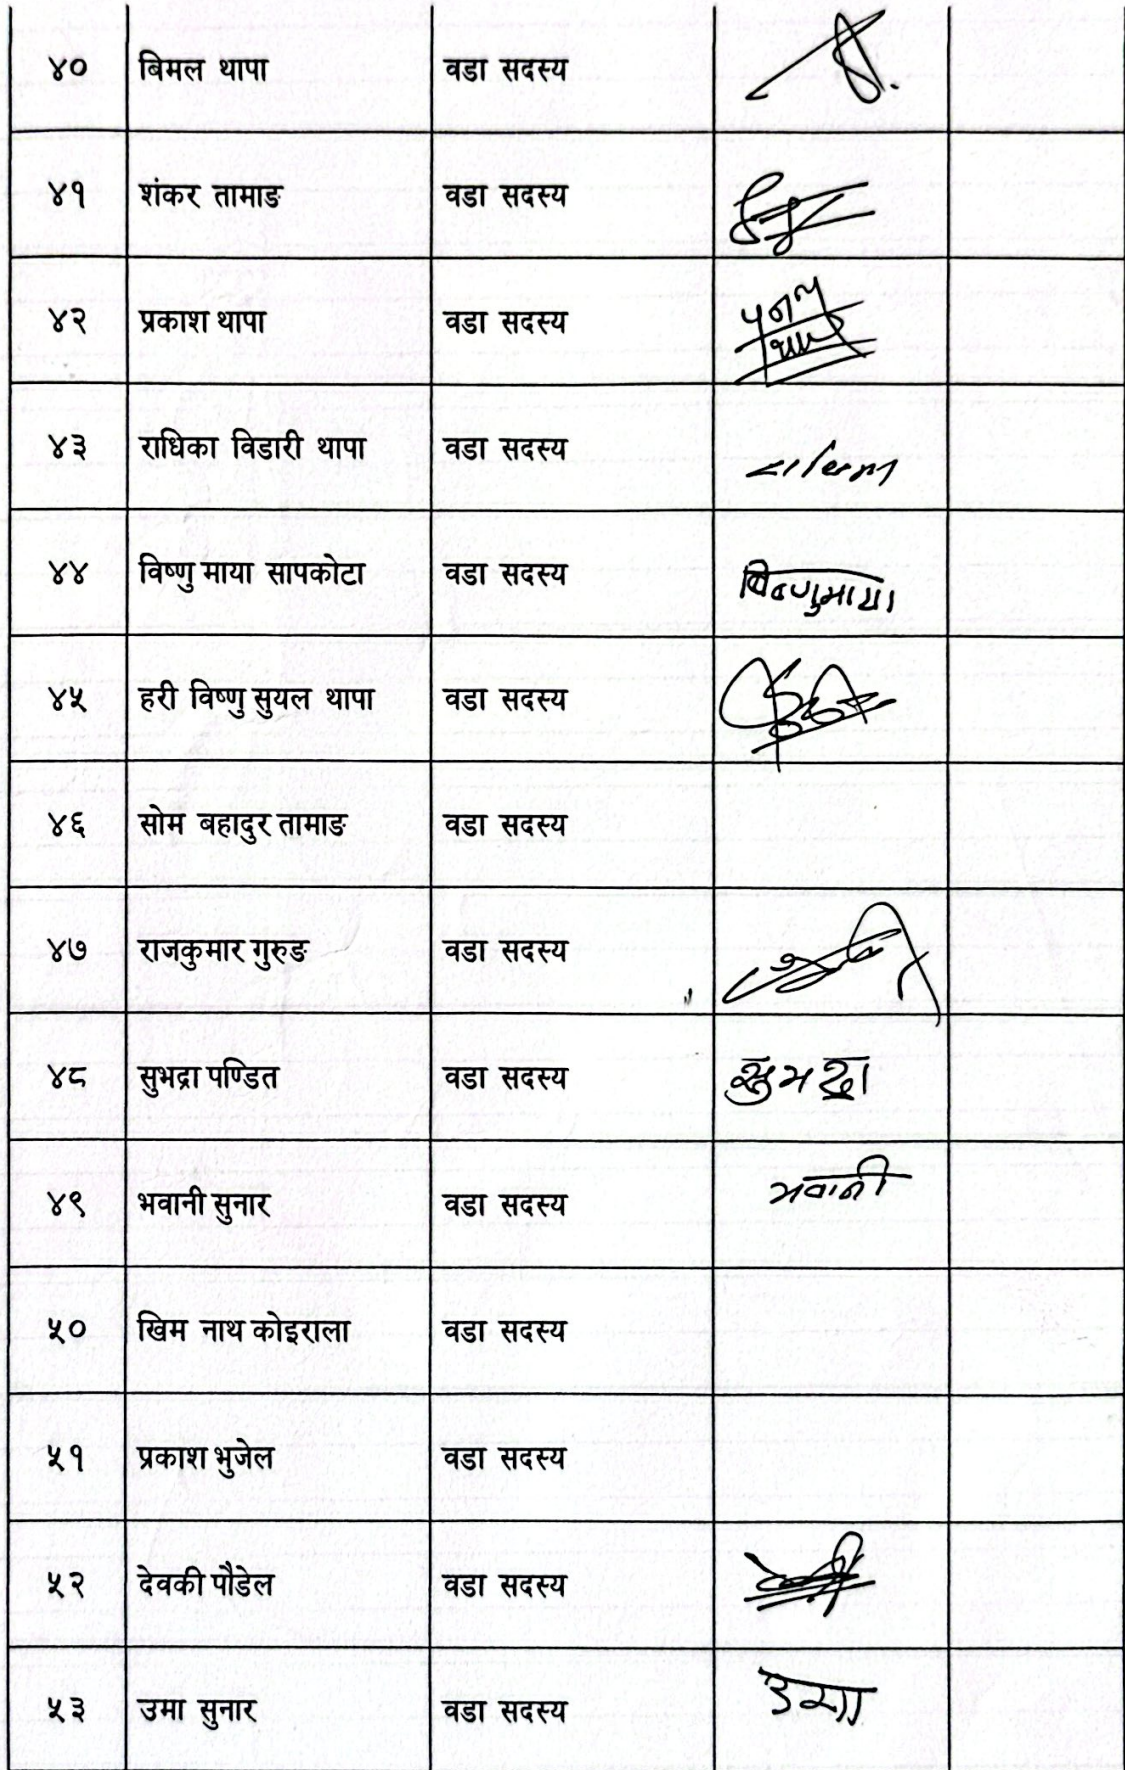 ४० बिमल थापा वडा सदस्य
४१ शंकर तामाङ वडा सदस्य
४२ प्रकाश थापा वडा सदस्य
४३ राधिका विडारी थापा वडा सदस्य
४४ विष्णु माया सापकोटा वडा सदस्य विष्णुमाया
४५ हरी विष्णु सुयल थापा वडा सदस्य
४६ सोम बहादुर तामाङ वडा सदस्य
४७ राजकुमार गुरुङ वडा सदस्य
४८ सुभद्रा पण्डित वडा सदस्य सुभद्रा
४९ भवानी सुनार वडा सदस्य भवानी
५० खिम नाथ कोइराला वडा सदस्य
५१ प्रकाश भुजेल वडा सदस्य
५२ देवकी पौडेल वडा सदस्य
५३ उमा सुनार वडा सदस्य उमा